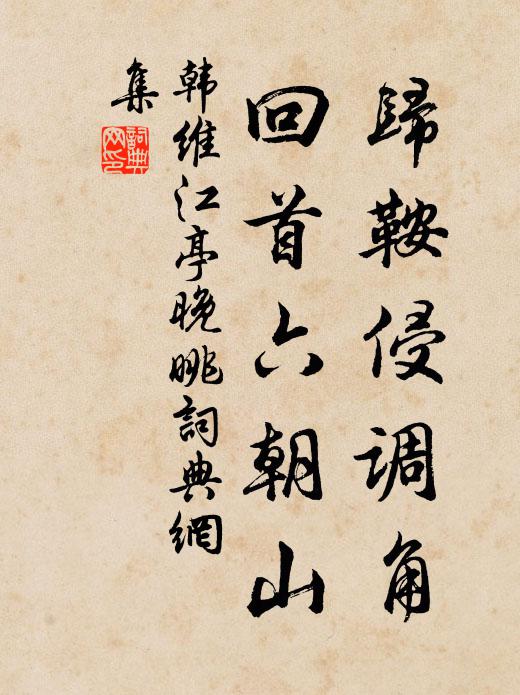 歸鞍侵调角
回首六朝山
韩維江亭晚眺詞典網
集
詞典網印